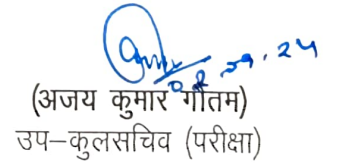 08.09.24
(अजय कुमार गौतम)
उप-कुलसचिव (परीक्षा)